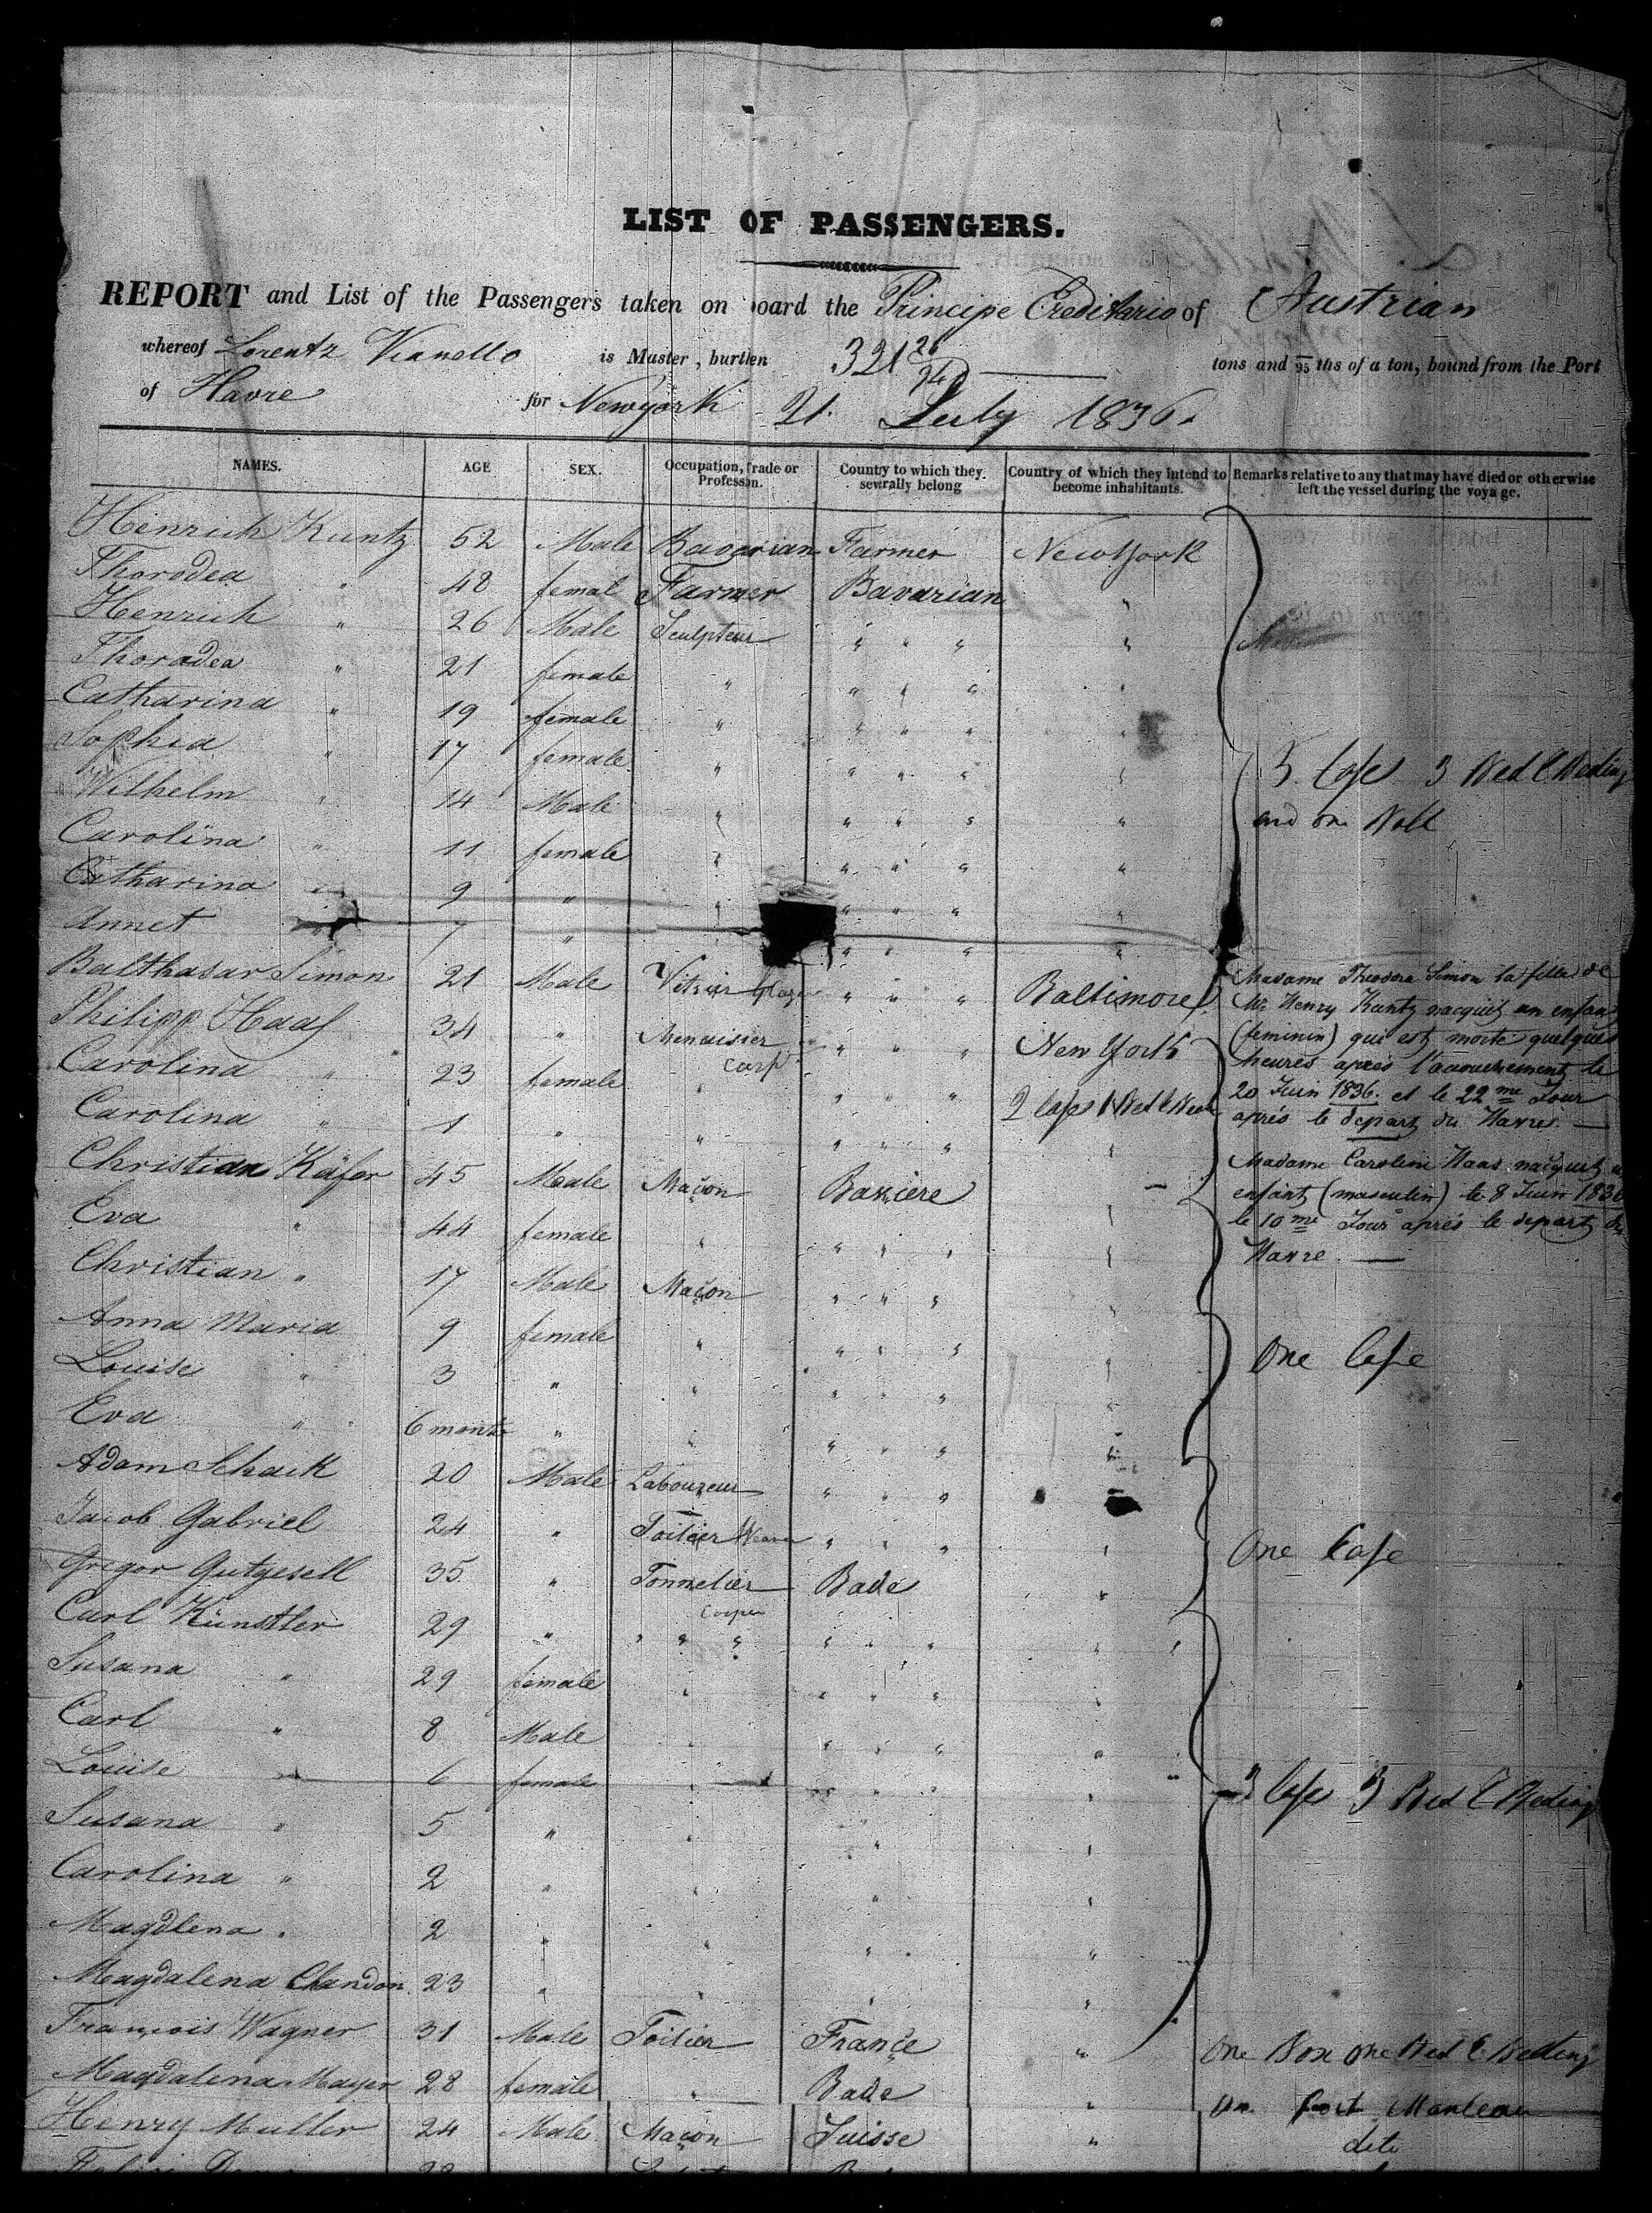 LIST OF PASSENGERS.
REPORT and List of the Passengers taken on board the Principe Ereditario of Austrian
whereof Lorentz Vianello is Master, burthen 321 26/95 tons and 95 ths of a ton, bound from the Port
of Havre for Newyork 21. July 1836.
NAMES. AGE SEX. Occupation, Trade or Professon. Country to which they sevrally belong Country of which they intend to become inhabitants. Remarks relative to any that may have died or otherwise left the vessel during the voyage.
Heinrich Kuntz 52 Male Bavarian Farmer New York
Thorodea " 48 femal Farmer Bavarian "
Henrich " 26 Male Sculpteur " " " "
Thoradea " 21 female " " " " "
Catharina " 19 female " " " " "
Sophia " 17 female " " " " "
Wilhelm " 14 Male " " " " "
Carolina " 11 female " " " " "
Catharina " 9 " " " " " "
Annet " 7 " " " " "
Balthasar Simon 21 Male Vitrier " " " Baltimore
Philipp Haas 34 " Menuisier " " " New York
Carp
Carolina " 23 female " " " "
Carolina " 1 " " " " " "
Christian Käfer 45 Male Maçon Baviere
Eva " 44 female " " " " "
Christian " 17 Male Maçon " " " "
Anna Maria 9 female " " " " "
Louise " 3 " " " " " "
Eva " 6 month " " " " " "
Adam Schack 20 Male Laboureur " " "
Jacob Gabriel 24 " Toilier " " " "
Gregor Gutgesell 35 " Tonnelier Bade "
Cooper
Carl Künstler 29 " " " " " " " "
Susana " 29 female " " " " "
Carl " 8 Male " " " " "
Louise " 6 female " " " " "
Susana " 5 " " " "
Carolina " 2 " " " "
Magdlena " 2 " " " "
Magdalena Chandon 23 " " " "
François Wagner 31 Male Toilier France "
Magdalena Mayer 28 female " Bade "
Henry Muller 24 Male Maçon Suisse "
3 Bed & Beding
and one
Madame Theodora Simon la fille de
Mr. Henry Kuntz nacquit un enfant
(feminin) qui est morte quelques
heures après l'accouchement le
20 Juin 1836. et le 22 me Jour
aprés le depart du Havre. —
Madame Caroline Haas nacquit un
enfant (masculin) le 8 Juin 1836
le 10 me Jour aprés le depart du
Havre. —
One Case
One Case
3 Case 3 Bed & Beding
One Box one Bed & Bedding